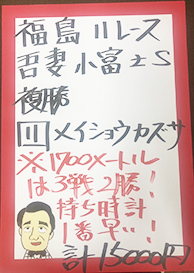 福島11レース
吾妻小富士S
複勝
⑪メイショウカズサ
※1700メートル
は3戦2勝!
持ち時計
1番早い!
計15000円